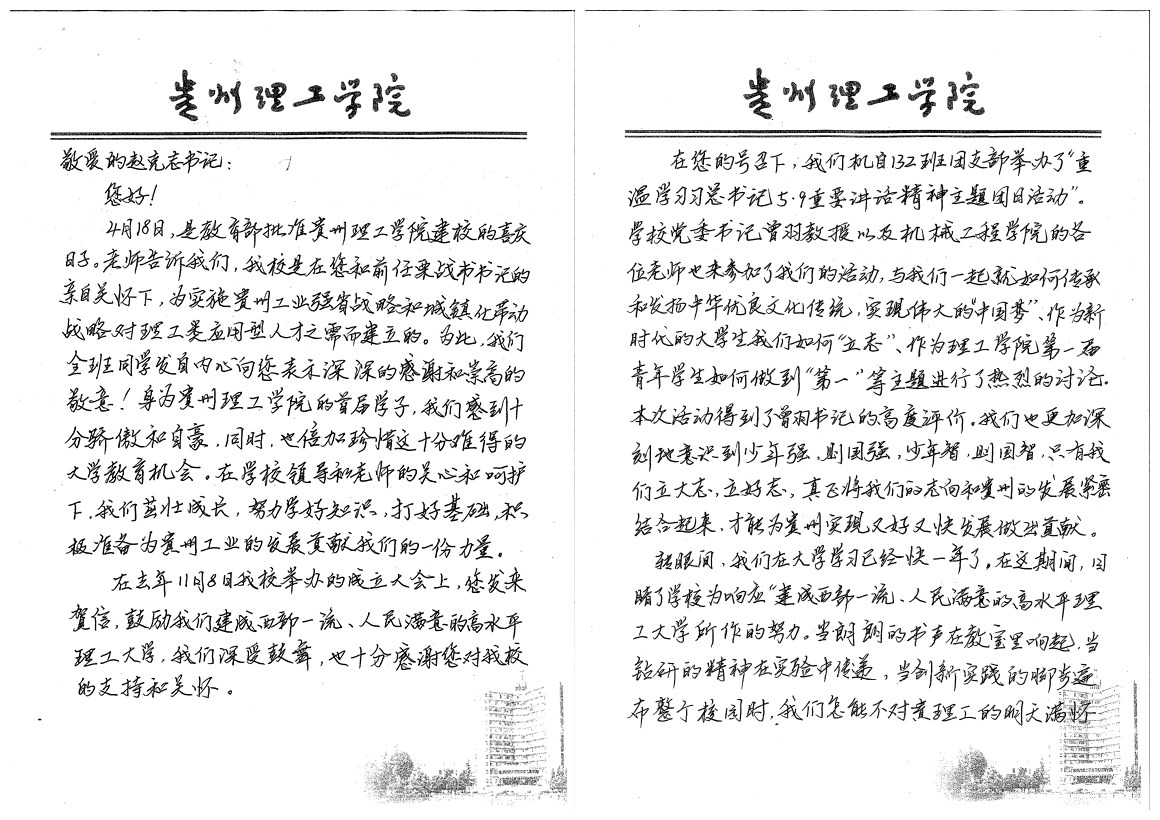 贵州理工学院
敬爱的赵克志书记:
您好!
4月18日,是教育部批准贵州理工学院建校的喜庆
日子。老师告诉我们,我校是在您和前任栗战书书记的
亲自关怀下,为实施贵州工业强省战略和城镇化带动
战略对理工类应用型人才之需而建立的。为此,我们
全班同学发自内心向您表示深深的感谢和崇高的
敬意!身为贵州理工学院的首届学子,我们感到十
分骄傲和自豪,同时,也倍加珍惜这十分难得的
大学教育机会。在学校领导和老师的关心和呵护
下,我们茁壮成长,努力学好知识,打好基础,积
极准备为贵州工业的发展贡献我们的一份力量。
在去年11月8日我校举办的成立大会上,您发来
贺信,鼓励我们建成西部一流、人民满意的高水平
理工大学,我们深受鼓舞,也十分感谢您对我校
的支持和关怀。
贵州理工学院
在您的号召下,我们机自132班团支部举办了“重
温学习习总书记5·9重要讲话精神主题团日活动”。
学校党委书记曾羽教授以及机械工程学院的各
位老师也来参加了我们的活动,与我们一起就如何传承
和发扬中华优良文化传统,实现伟大的“中国梦”、作为新
时代的大学生我们如何“立志”、作为理工学院第一届
青年学生如何做到“第一”等主题进行了热烈的讨论.
本次活动得到了曾羽书记的高度评价。我们也更加深
刻地意识到少年强,则国强,少年智,则国智,只有我
们立大志,立好志,真正将我们的志向和贵州的发展紧密
结合起来,才能为贵州实现又好又快发展做出贡献。
转眼间,我们在大学学习已经快一年了。在这期间,目
睹了学校为响应“建成西部一流、人民满意的高水平理
工大学所作的努力。当朗朗的书声在教室里响起,当
钻研的精神在实验中传递,当创新实践的脚步遍
布整个校园时,我们怎能不对贵理工的明天满怀